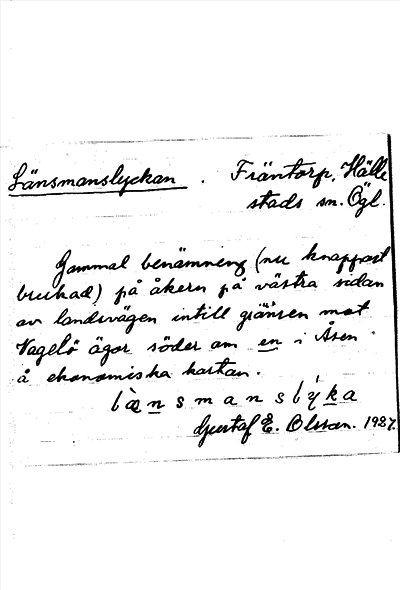 Länsmanslyckan. Fräntorp, Hälle
stads sn. Ögl.
Gammal benämning (nu knappast
brukad) på åkern på västra sidan
av landsvägen intill gränsen mot
Vagelö ägor söder om en i Åsen
å ekonomiska kartan.
læ̀nsmanslýka
Gustaf E. Olsson. 1927.